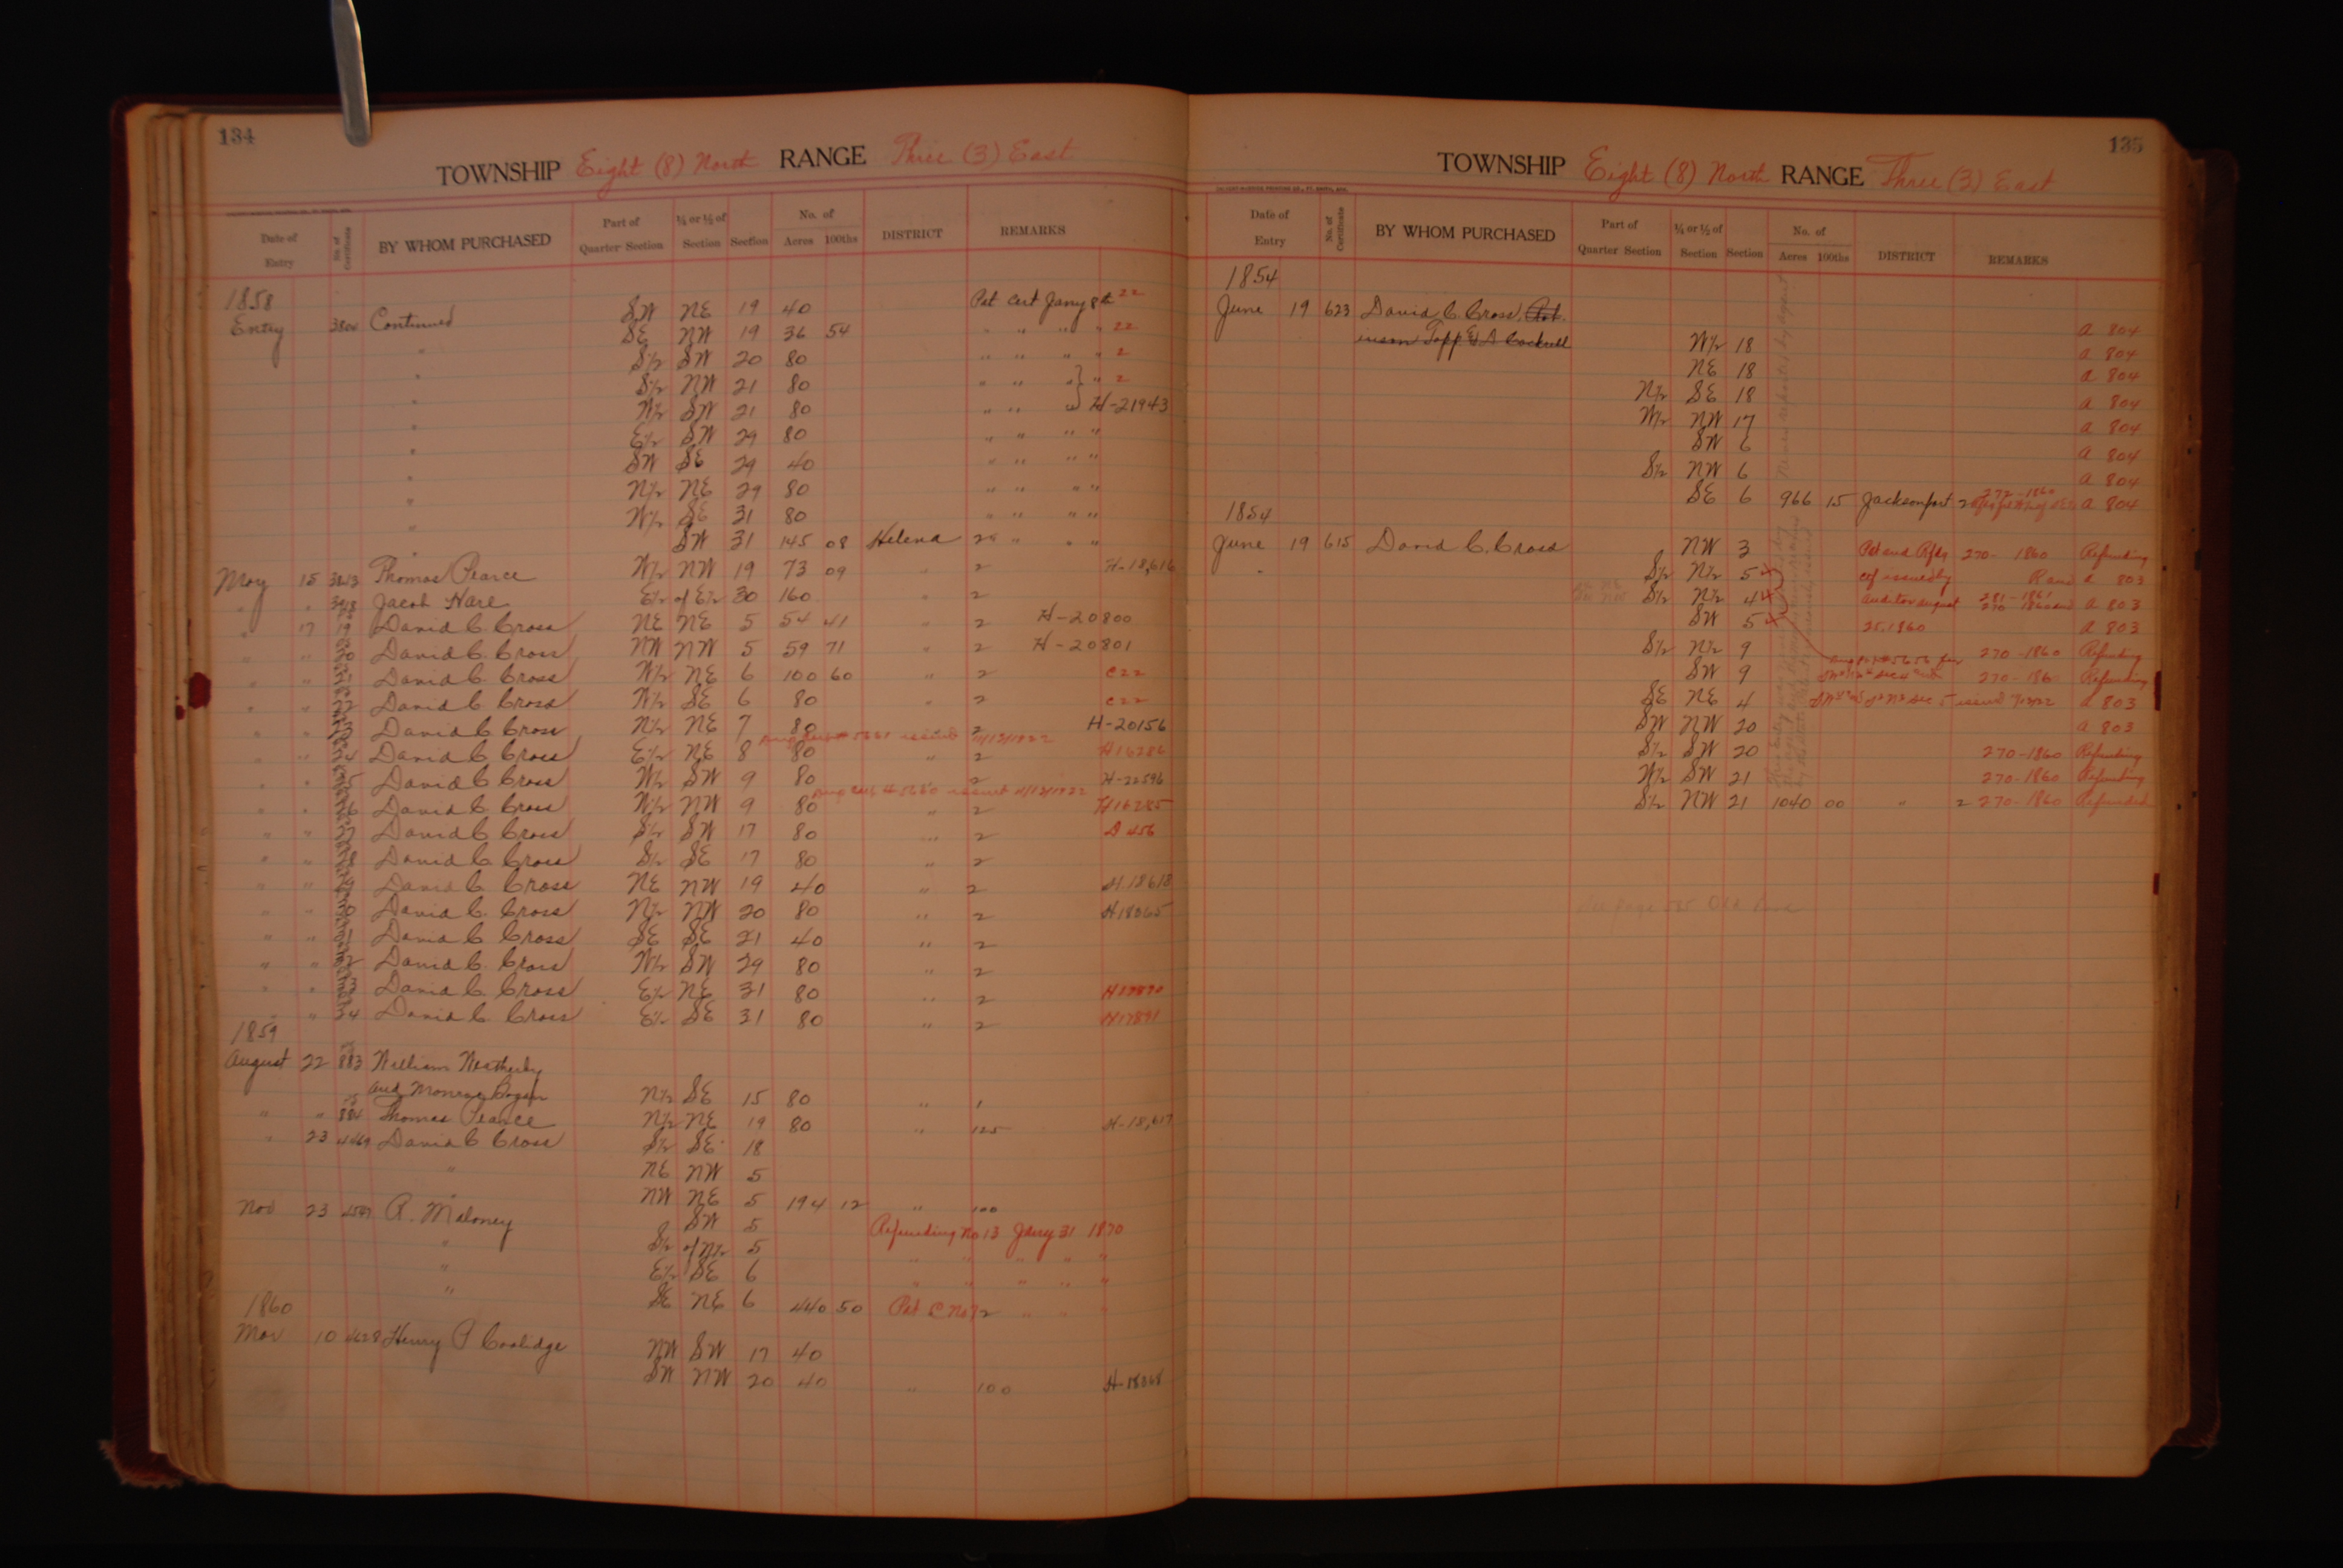 134
TOWNSHIP Eight (8) North RANGE Three (3) East
Date of Entry No. of Certificate BY WHOM PURCHASED Part of Quarter Section ¼ or ½ of Section Section No. of Acres 100ths DISTRICT REMARKS
1858
Entry 3804 Continued SW NE 19 40 Pat Cert Jany 8th 22
SE NW 19 36 54 " " " " 22
" S½ SW 20 80 " " " " 2
" S½ NW 21 80 " " " " 2
" W½ SW 21 80 " " " H-21943
" E½ SW 29 80 " " " "
" SW SE 29 40 " " " "
" N½ NE 29 80 " " " "
" W½ SE 31 80 " " " "
" SW 31 145 08 Helena 2 " " " "
May 15 3813 Thomas Pearce W½ NW 19 73 09 " 2 H-18,616
" " Jacob Hare E½ of E½ 30 160 " 2
" 17 19 David C. Cross NE NE 5 54 41 " 2 H-20800
" " 20 David C. Cross NW NW 5 59 71 " 2 H-20801
" " 21 David C. Cross W½ NE 6 100 60 " 2 C22
" " 22 David C. Cross W½ SE 6 80 " 2 C22
" " 23 David C. Cross N½ NE 7 80 2 H-20156
issued 11/13/1922
" " 24 David C. Cross E½ NE 8 80 " 2 H16286
" " 25 David C. Cross W½ SW 9 80 2 H-22596
issued 11/13/1922
" " 26 David C. Cross W½ NW 9 80 " 2 H16285
" " 27 David C. Cross S½ SW 17 80 " 2 D 456
" " 28 David C. Cross S½ SE 17 80 " 2
" " 29 David C. Cross NE NW 19 40 " 2 H.18618
" " 30 David C. Cross N½ NW 20 80 " 2 H18065
" " 31 David C. Cross SE SE 21 40 " 2
" " 32 David C. Cross W½ SW 29 80 " 2
" " 33 David C. Cross E½ NE 31 80 " 2
" " 34 David C. Cross E½ SE 31 80 " 2 H17891
1859
August 22 883 William Weatherly
and N½ SE 15 80 " 1
" " 884 Thomas Pearce N½ NE 19 80 " 125 H-18,617
" 23 4469 David C Cross S½ SE 18
" NE NW 5
" NW NE 5 194 12 " 100
Nov 23 R. Maloney SW 5 Refunding No 13 Jany 31 1870
" S½ of N½ 5 " " " " "
" E½ SE 6 " " " " "
" SE NE 6 440 50 Pat C No 72 " " "
1860
Mar 10 4628 Henry P Coolidge NW SW 17 40
SW NW 20 40 " 100 H-18068
135
TOWNSHIP Eight (8) North RANGE Three (3) East
Date of Entry No. of Certificate BY WHOM PURCHASED Part of Quarter Section ¼ or ½ of Section Section No. of Acres 100ths DISTRICT REMARKS
1854
June 19 623 David C. Cross, a 804
W½ 18 a 804
NE 18 a 804
N½ SE 18 a 804
W½ NW 17 a 804
SW 6 a 804
S½ NW 6 a 804
SE 6 966 15 Jacksonport 2 272-1860 a 804
1854
June 19 615 David C. Cross NW 3 Pat and Rfdg 270- 1860 Refunding
" S½ N½ 5 x cef issued by R and a 803
S½ N½ 4 x auditor august 281-1861 270 1860 and a 803
SW 5 x 25, 1860 a 803
S½ N½ 9 270-1860 Refunding
SW 9 270-186 Refunding
SE NE 4 issued a 803
SW NW 20 a 803
S½ SW 20 270-1860 Refunding
W½ SW 21 270-1860 Refunding
S½ NW 21 1040 00 " 2 270-1860 Refunded
See page 585 Old Book